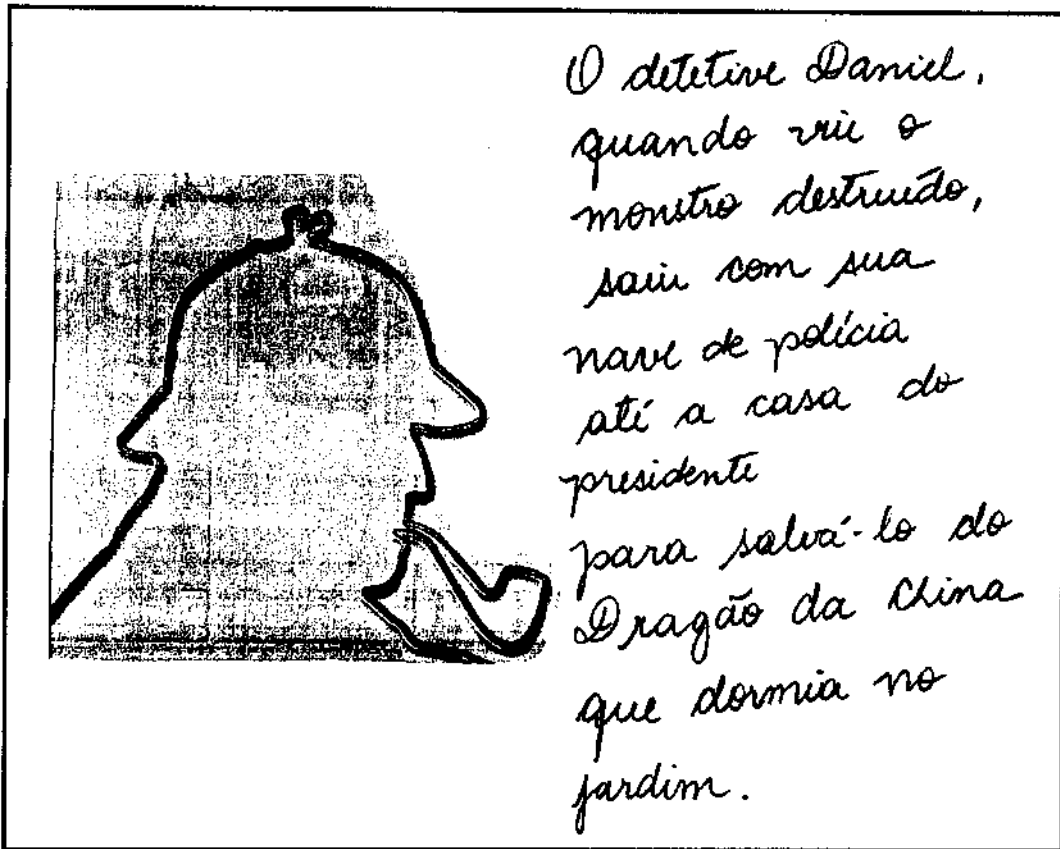 O detetive Daniel,
quando viu o
monstro destruído,
saiu com sua
nave de polícia
até a casa do
presidente
para salvá-lo do
Dragão da China
que dormia no
jardim.